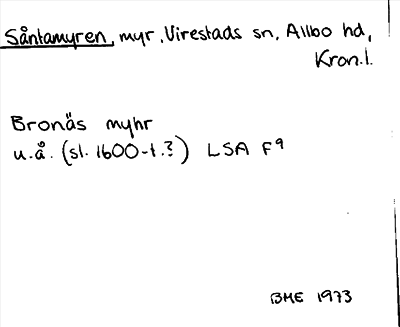 Såntamyren, myr, Virestads sn, Allbo hd,
Kron.l.
Bronäs myhr
u.å. (sl. 1600-t.?) LSA F9
BME 1973